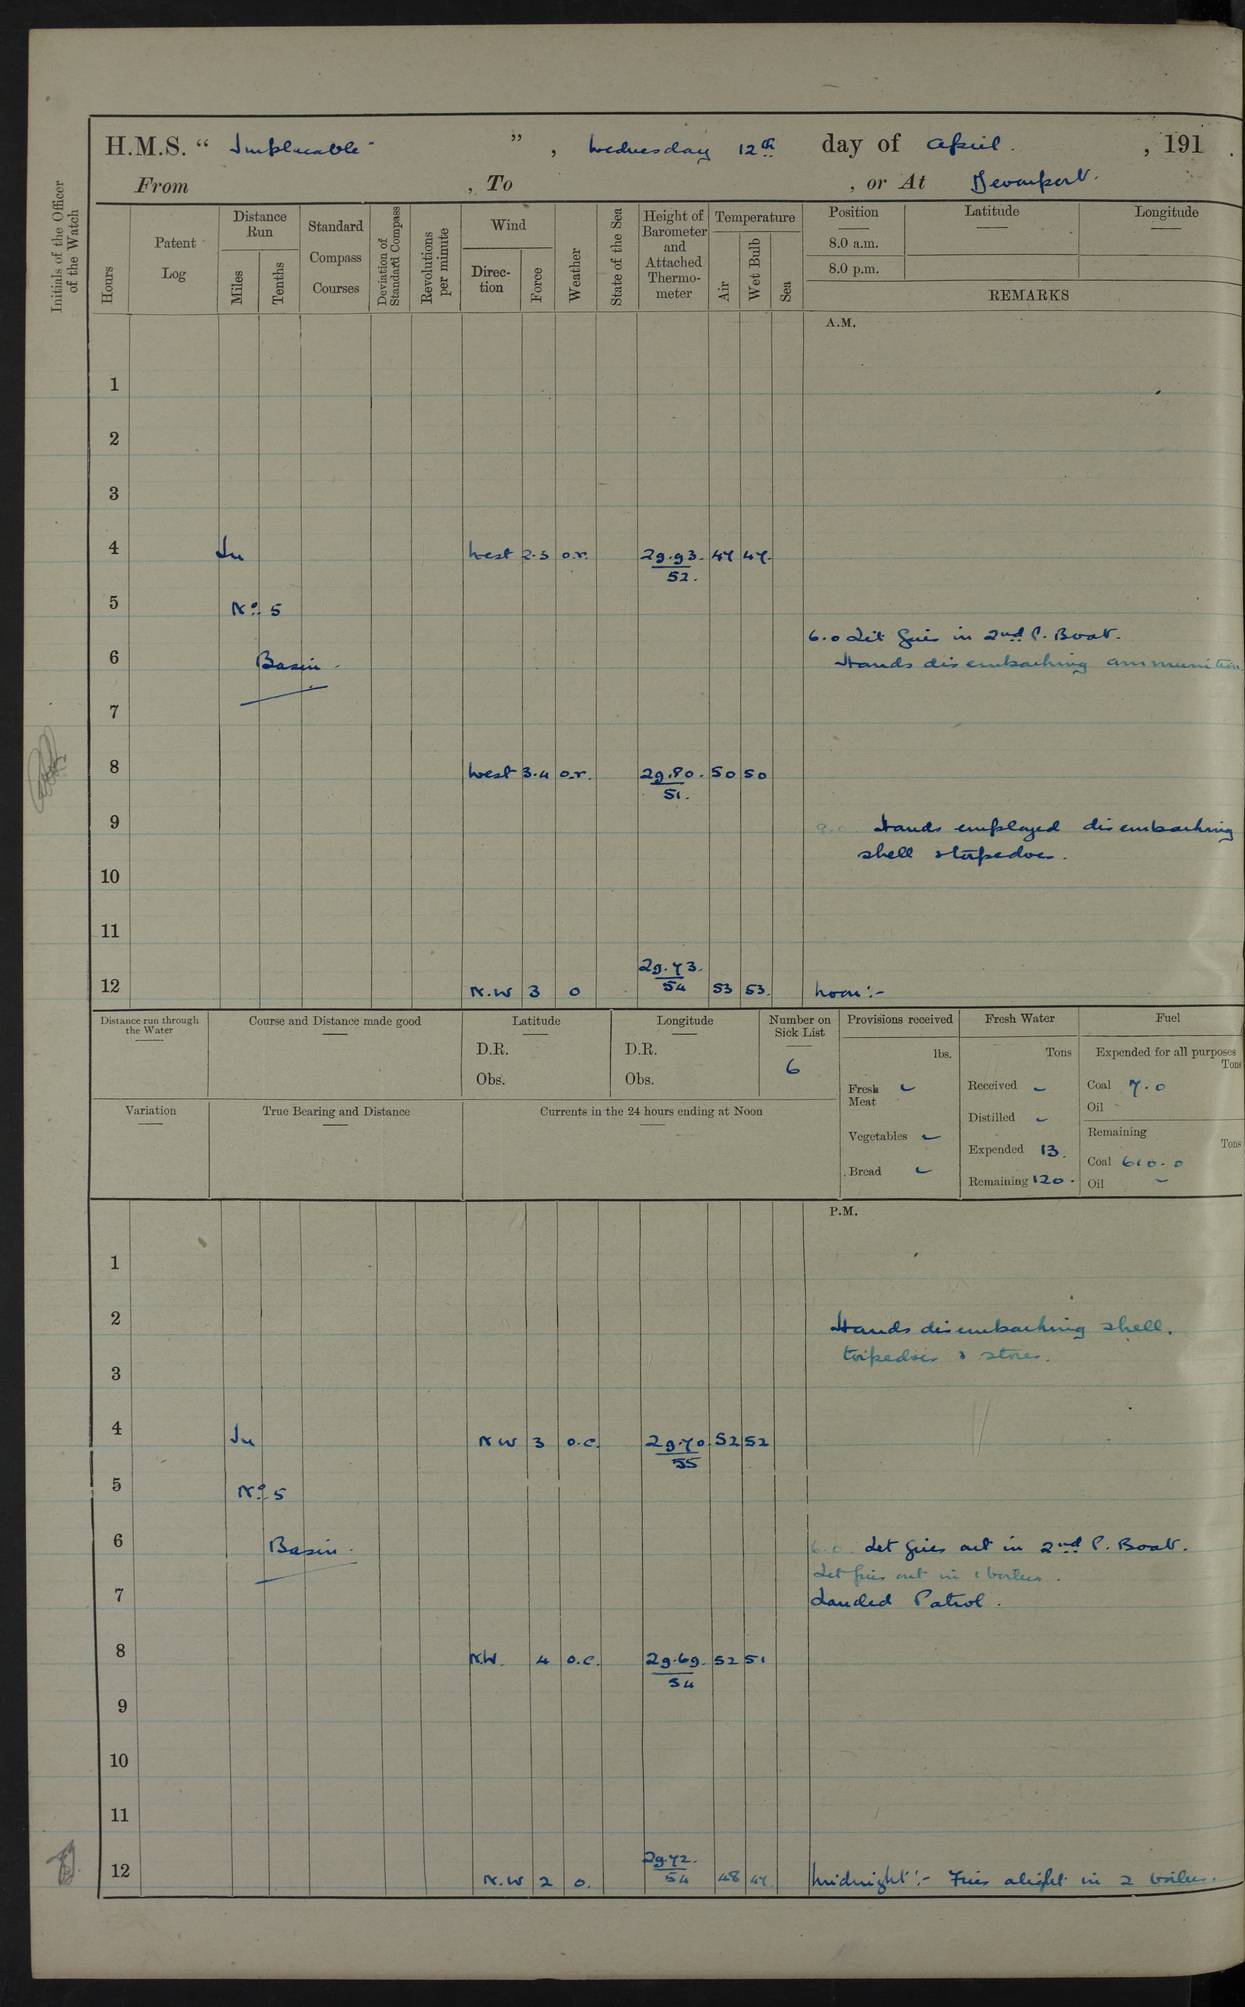 H.M.S. “ Implacable ” , Wednesday 12th day of April , 191 .
From , To , or At Devonport.
Initials of the Officer of the Watch
Hours
Patent Log
Distance Run
Miles
Tenths
Standard Compass Courses
Deviation of Standard Compass
Revolutions per minute
Wind
Direc-tion
Force
Weather
State of the Sea
Height of Barometer and Attached Thermo-meter
Temperature
Air
Wet Bulb
Sea
Position Latitude Longitude
8.0 a.m.
8.0 p.m.
REMARKS
A.M.
1
2
3
4 In West 2.3 o.r. 29.93. 47 47.
52.
5 No 5
6.0 Lit fires in 2nd P. Boat.
6 Basin. Hands disembarking ammunition
7
8 West 3.4 o.r. 29.80. 50 50
51.
9 9.0 Hands employed disembarking
shell & torpedoes.
10
11
29.73.
12 N.W 3 o 54 53 53. Noon:-
Distance run through the Water
Course and Distance made good
Latitude
D.R.
Obs.
Longitude
D.R.
Obs.
Number on Sick List
6
Variation
True Bearing and Distance
Currents in the 24 hours ending at Noon
Provisions received
lbs.
Fresh Meat -
Vegetables -
Bread -
Fresh Water
Tons
Received -
Distilled -
Expended 13.
Remaining 120.
Fuel
Expended for all purposes
Tons
Coal 7.0
Oil -
Remaining
Tons
Coal 610.0
Oil -
P.M.
1
2 Hands disembarking shell.
torpedoes & stores.
3
4 In N W 3 o.c. 29.70. 52 52
55
5 No 5
6 Basin. 6.0. Let fires out in 2nd P. Boat.
Let fires out in 1 boiler.
7 Landed Patrol.
8 N.W. 4 o.c. 29.69. 52 51
54
9
10
11
29.72.
12 N.W 2 o. 54 48 47. Midnight:- Fires alight in 2 boilers.